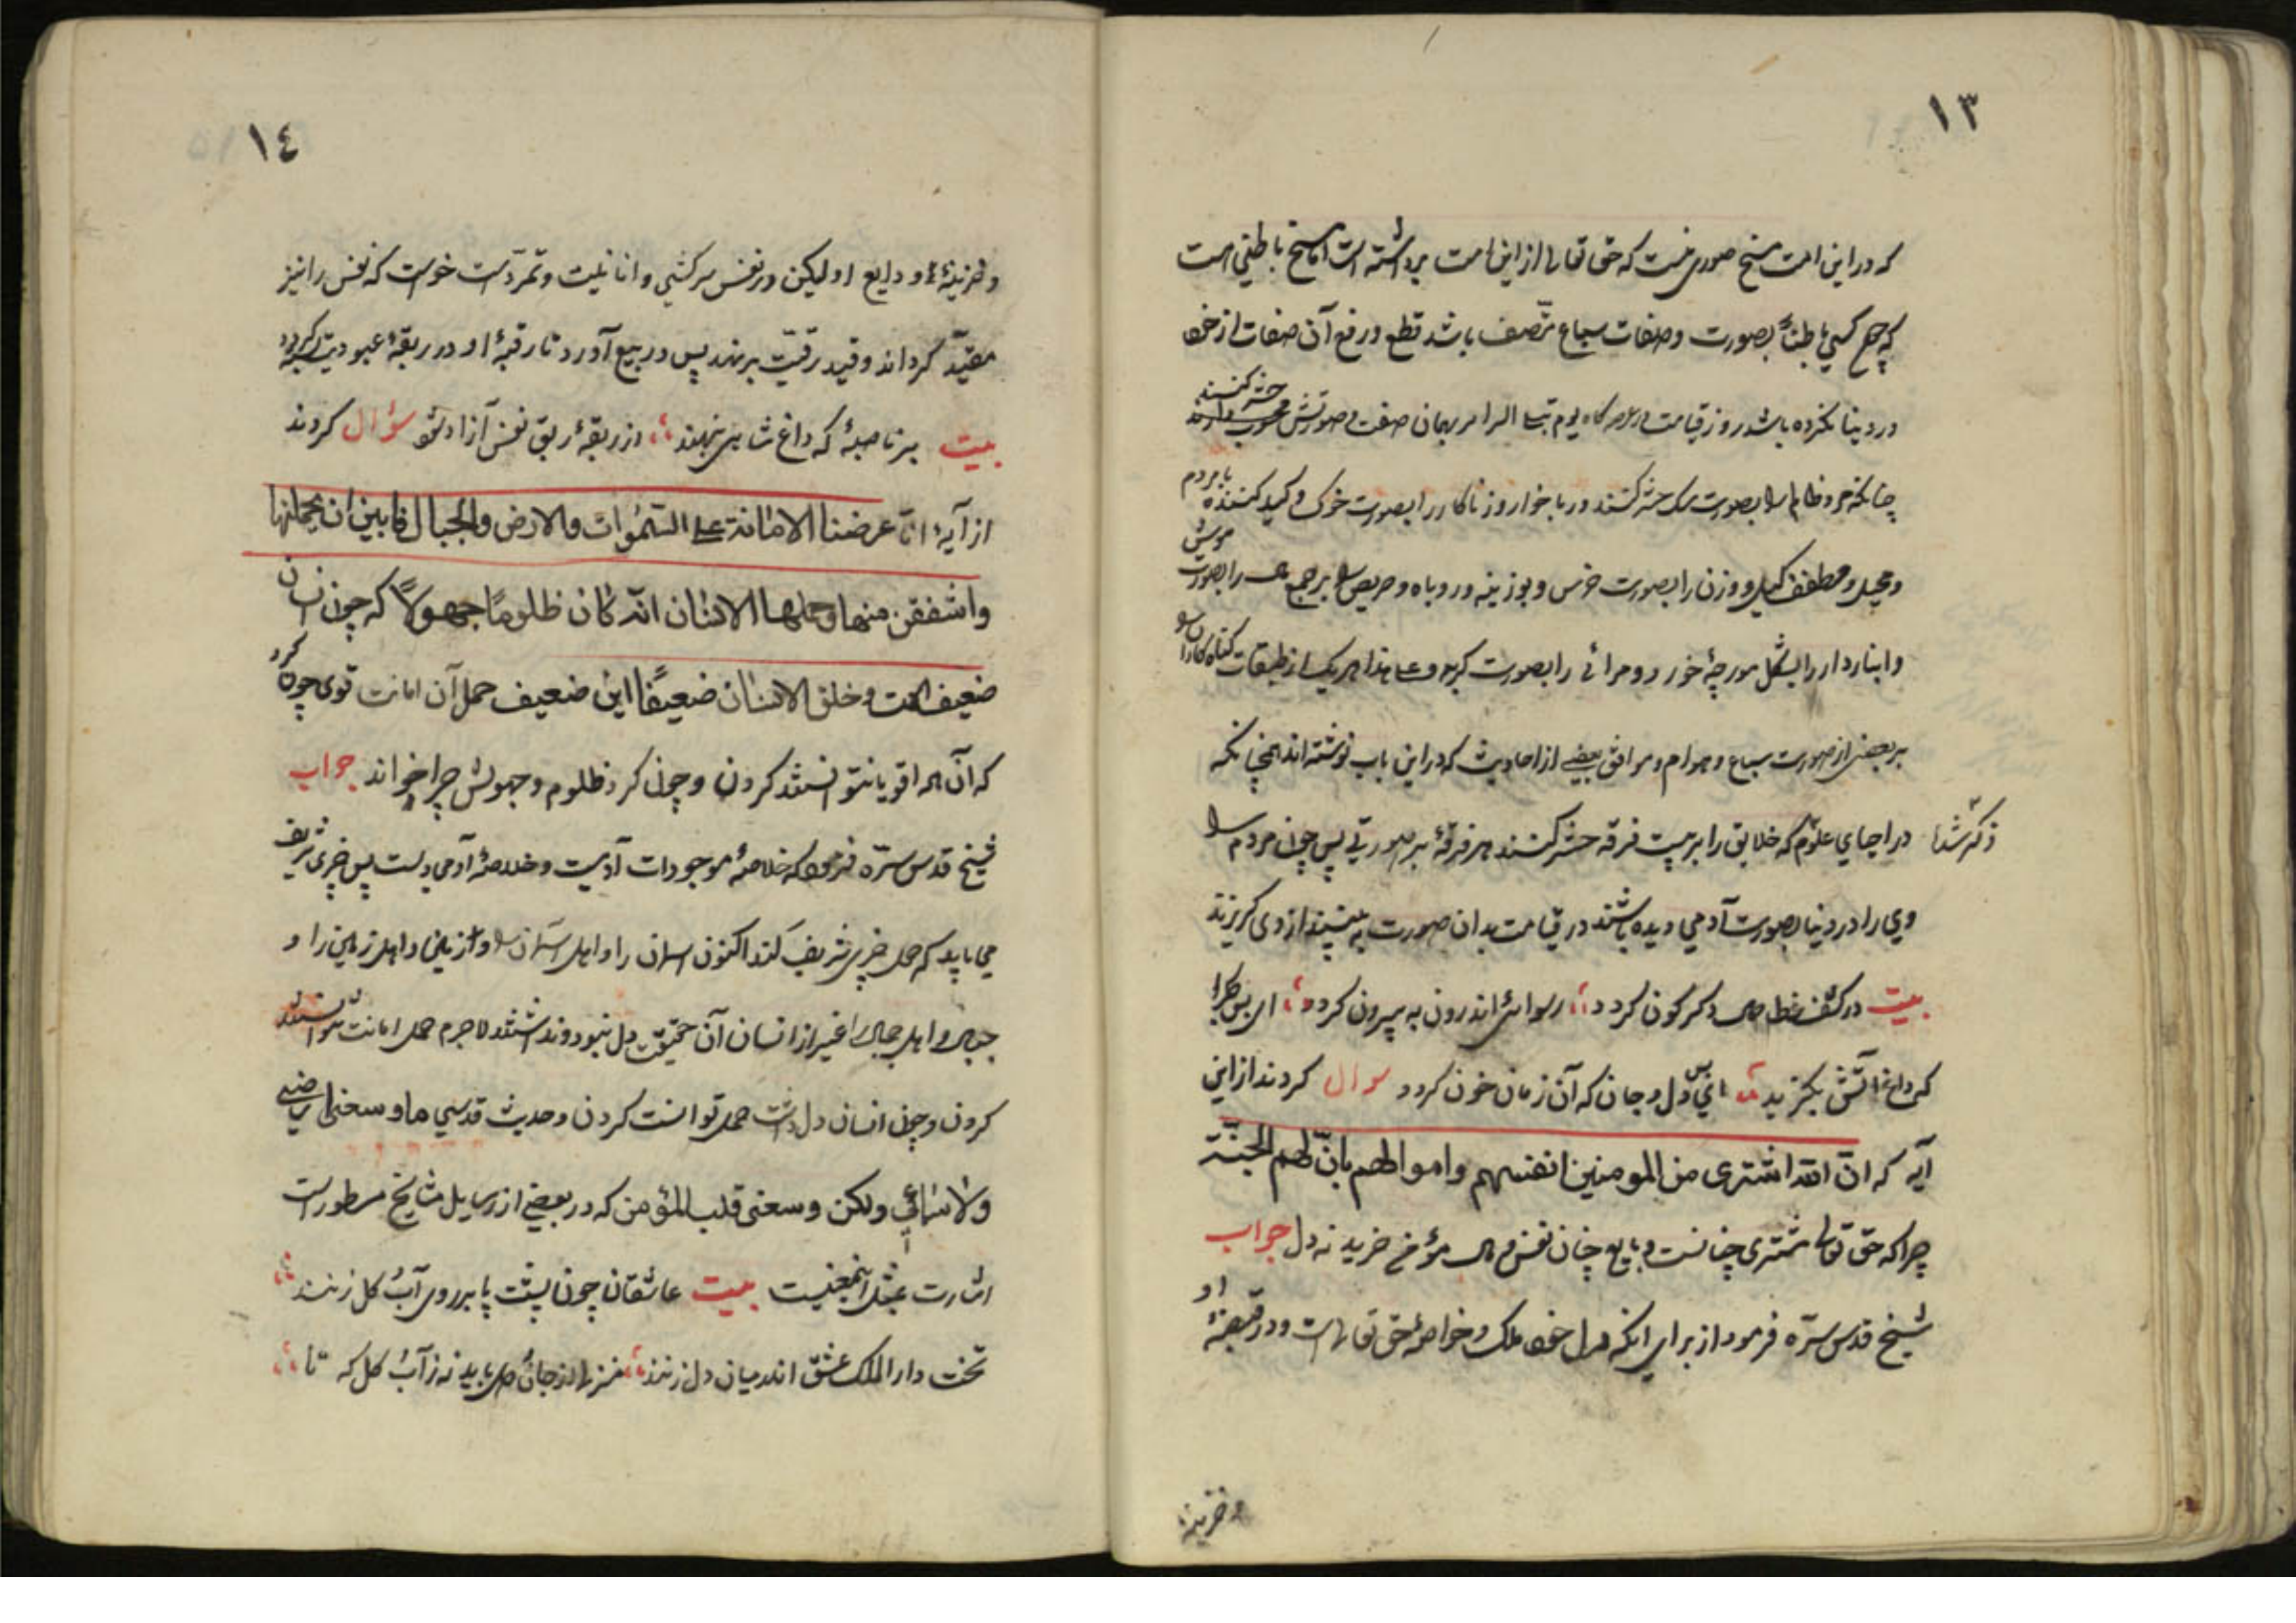 ١٣
که در این امت مسخ صوری نیست که حق تعالی از این امت برداشته است اما مسخ باطنی هست
که چون کسی باطناً بصورت وصفات سباع متصف باشد قطع و رفع آن صفات از خود
در دنیا نکرده باشد روز قیامت در عرصه‌گاه یوم تبلی السرایر بهمان صفت و صورتش حشر کنند
چنانکه مرد ظالم را بصورت سگ حشر کنند و رباخوار و زناکار را بصورت خوک و کید کننده با مردم
و محیل و مطفف کیل و وزن را بصورت خرس و بوزینه و روباه و حریص را بر جمع را بصورت موش
و انباردار را بشکل مورچهٔ خورد و مرائی را بصورت گربه و علی هذا هر یک از طبقات گناه‌کاران را
بر بعضی از صورت سباع و هوام و موافق بعضی از احادیث که در این باب نوشته‌اند همچنانکه
ذکر شد در احیای علوم که خلایق را بر بیست فرقه حشر کنند هر فرقهٔ بر صورتی پس چون مردم
وی را در دنیا بصورت آدمی دیده باشند در قیامت بدان صورت ببینند از وی گریزند
بیت در کشف غطا حال دگرگون گردد رسوائی اندرون به بیرون گردد ای بس
که داغ آتش بگزیند ای بس دل و جان که آن زمان خون گردد سوال کردند از این
آیه که انّ الله اشتری من المومنین انفسهم و اموالهم بانّ لهم الجنّة
چرا که حق تعالی مشتری چنانست و بایع چنان نفس و مال مؤمن خرید نه دل جواب
شیخ قدس سرّه فرمود از برای آنکه دل خود ملک و خواصهٔ حق تعالی است و در قبضهٔ او
و خزینهٔ
١٤
و خزینهٔ ودایع او لیکن در نفس سرکشی و انانیت و تمرّدست خواست که نفس را نیز
مقیّد گرداند و قید رقیّت بر نهد پس در بیع آورد تا رقبهٔ او در ربقهٔ عبودیت
بیت بر ناصیهٔ که داغ شاهی بنهند از ربقهٔ ربق نفس آزاد شود سؤال کردند
از آیهٔ انّا عرضنا الامانة علی السّموات والارض والجبال فابین ان یحملنها
واشفقن منها وحملها الانسان انّه کان ظلوماً جهولاً که چون انسان
ضعیف است و خلق الانسان ضعیفاً این ضعیف حمل آن امانت قوی چون کرد
که آن همه اقویا نتوانستند کردن و چون کرد ظلوم و جهولش چرا خواند جواب
شیخ قدس سرّه فرمود که خلاصهٔ موجودات آدمیست و خلاصهٔ آدمی دلست پس چیزی شریف
می باید که حمل چیزی شریف کند اکنون آسمان را و اهل آسمان را و زمین را و اهل زمین را و
جبال و اهل جبال را غیر از انسان آن حقیقت دل نبود و نداشتند لاجرم حمل امانت نتوانستند
کردن و چون انسان دل داشت حمل توانست کردن و حدیث قدسی ما وسعنی ارضی
ولا سمائی ولکن وسعنی قلب المؤمن که در بعضی از رسایل مشایخ مسطور است
اشارت بمثل اینمعنیست بیت عاشقان چون پشت پا بر روی آب و گل زنند
تخت دار الملک عشق اندر میان دل زنند منزل از جان و دل باید نه ز آب و گل که تا